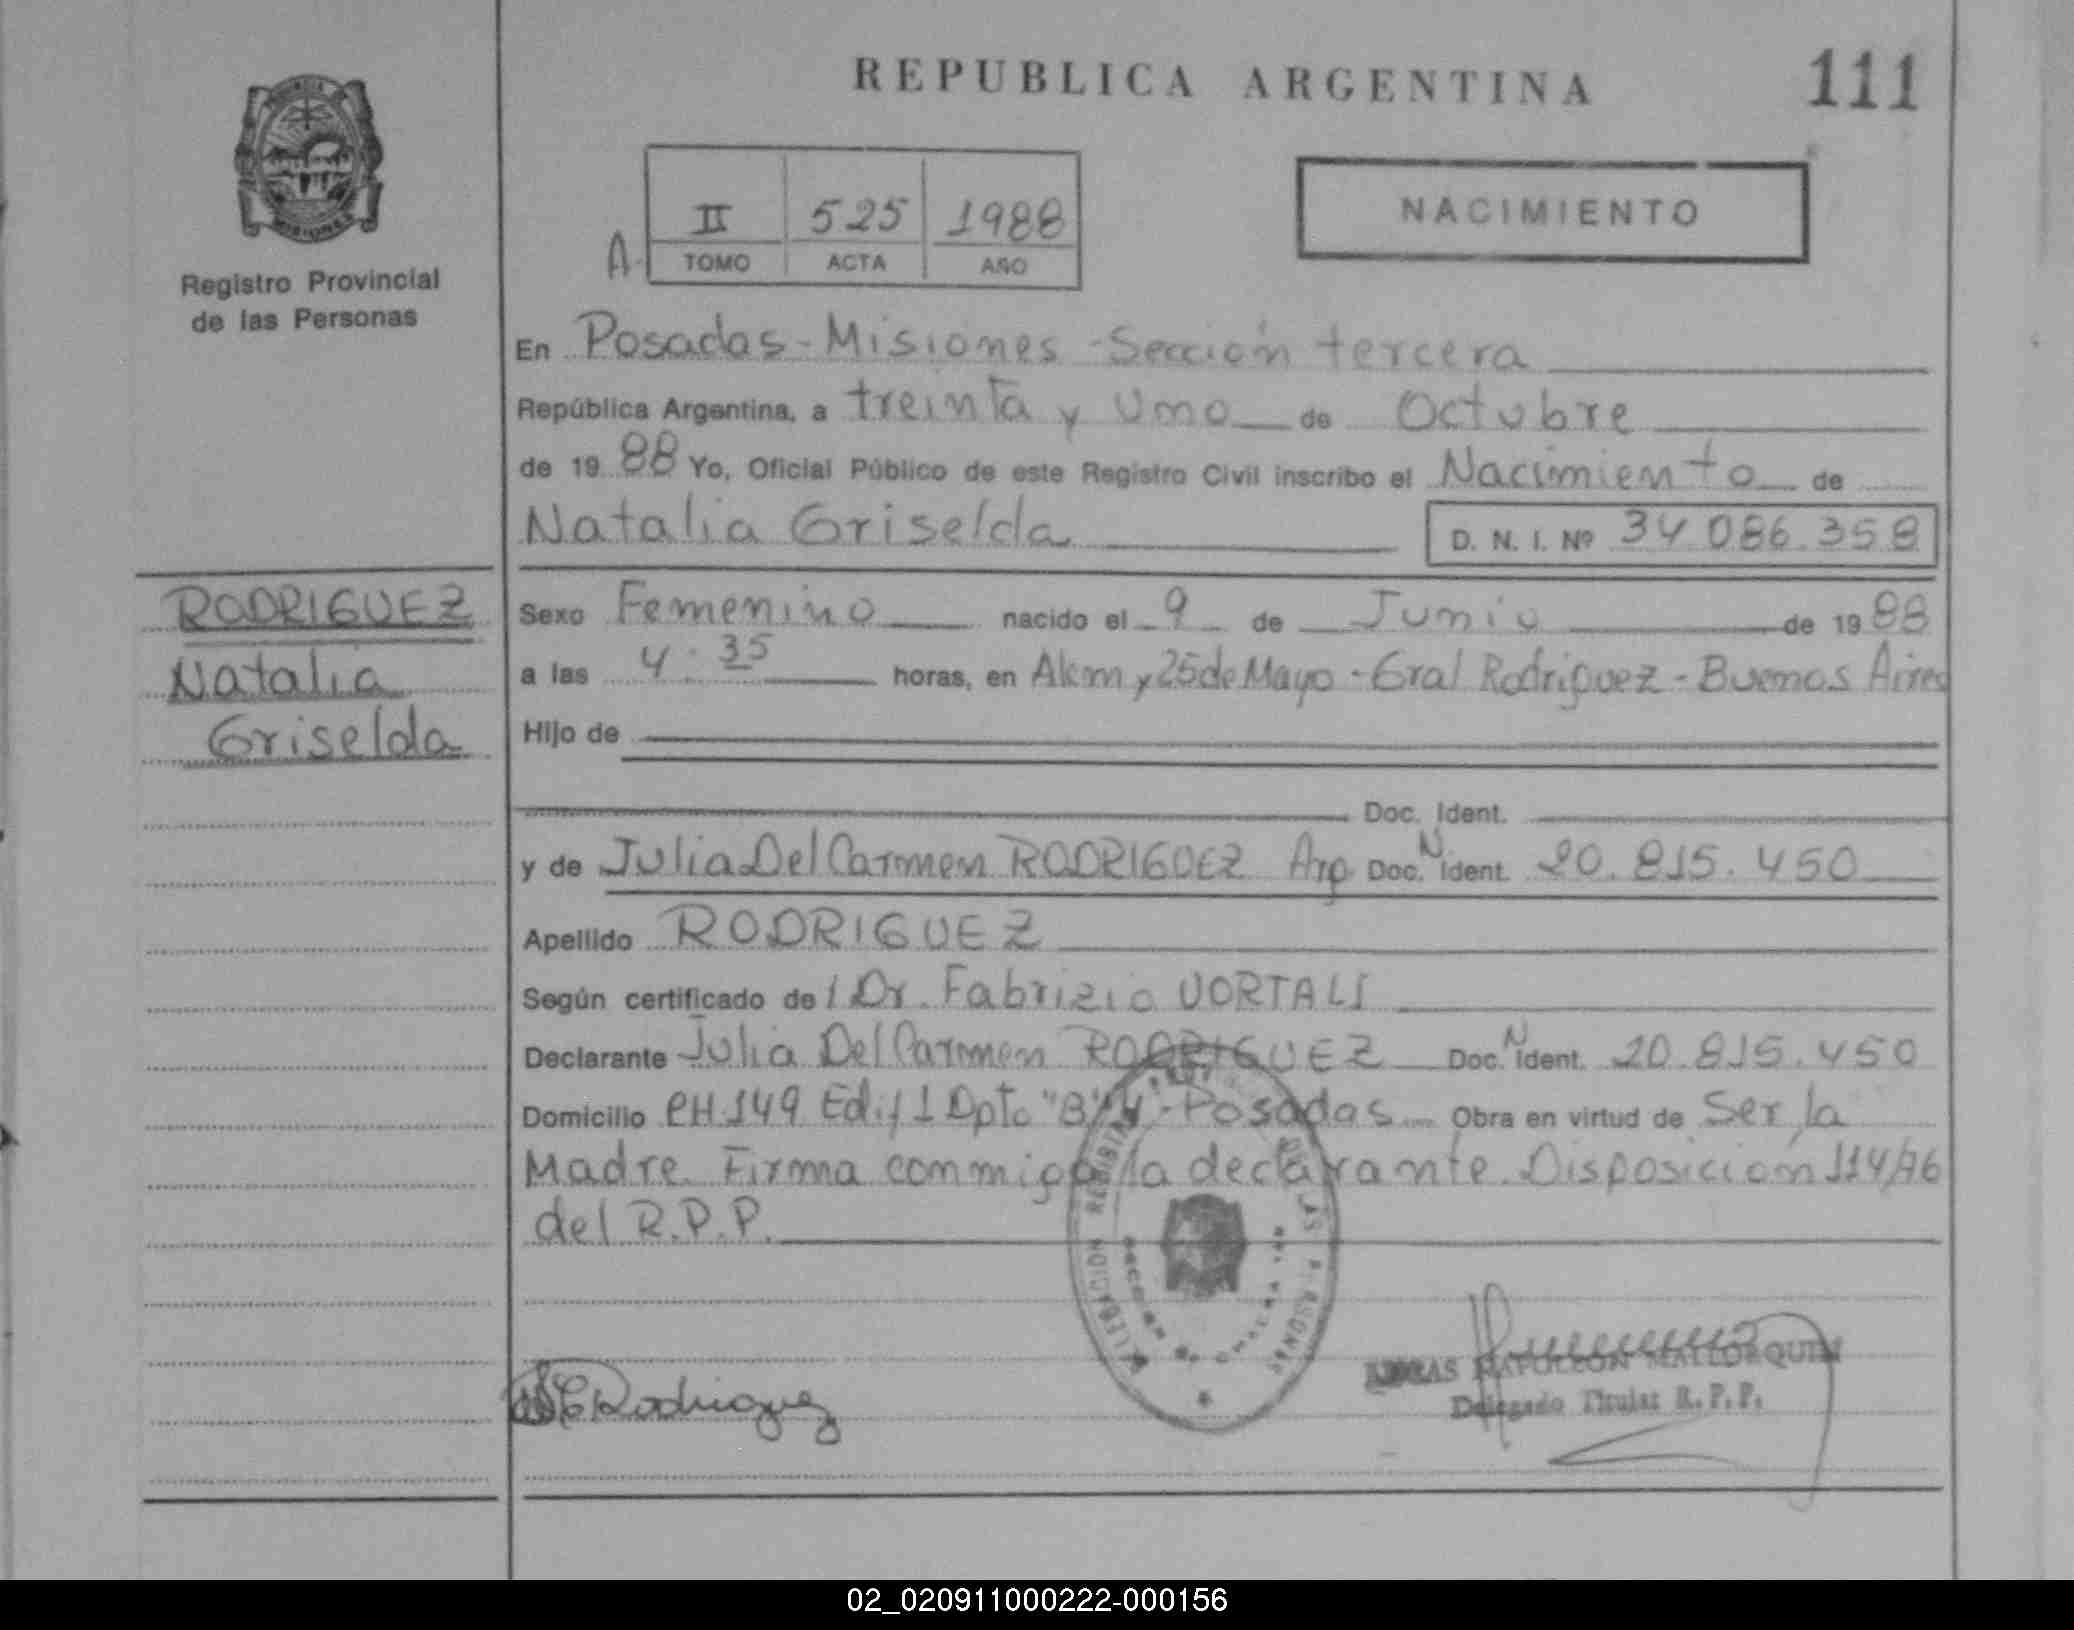 REPUBLICA ARGENTINA
111
II 525 1988
A. TOMO ACTA AÑO
NACIMIENTO
Registro Provincial
de las Personas
En Posadas - Misiones - Sección tercera
República Argentina, a treinta y Uno de Octubre
de 19 88 Yo, Oficial Público de este Registro Civil inscribo el Nacimiento de
Natalia Griselda D. N. I. Nº 34 086.358
RODRIGUEZ
Natalia
Griselda
Sexo Femenino nacido el 9 de Junio de 19 88
a las 4.35 horas, en Alem y 25 de Mayo - Gral Rodriguez - Buenos Aires
Hijo de
Doc. Ident.
y de Julia Del Carmen RODRIGUEZ Arg Doc. N Ident. 20.815.450
Apellido RODRIGUEZ
Según certificado de / Dr. Fabrizio VORTALI
Declarante Julia Del Carmen RODRIGUEZ Doc. N Ident. 20.815.450
Domicilio CH.149 Edif 1 Dpto "B" - Posadas Obra en virtud de Ser la
Madre. Firma conmigo la declarante. Disposición 114/76
del R.P.P.
Rodriguez
NAPOLEON MALLORQUIN
Delegado Titular R.P.P.
DE LAS PERSONAS
02_020911000222-000156